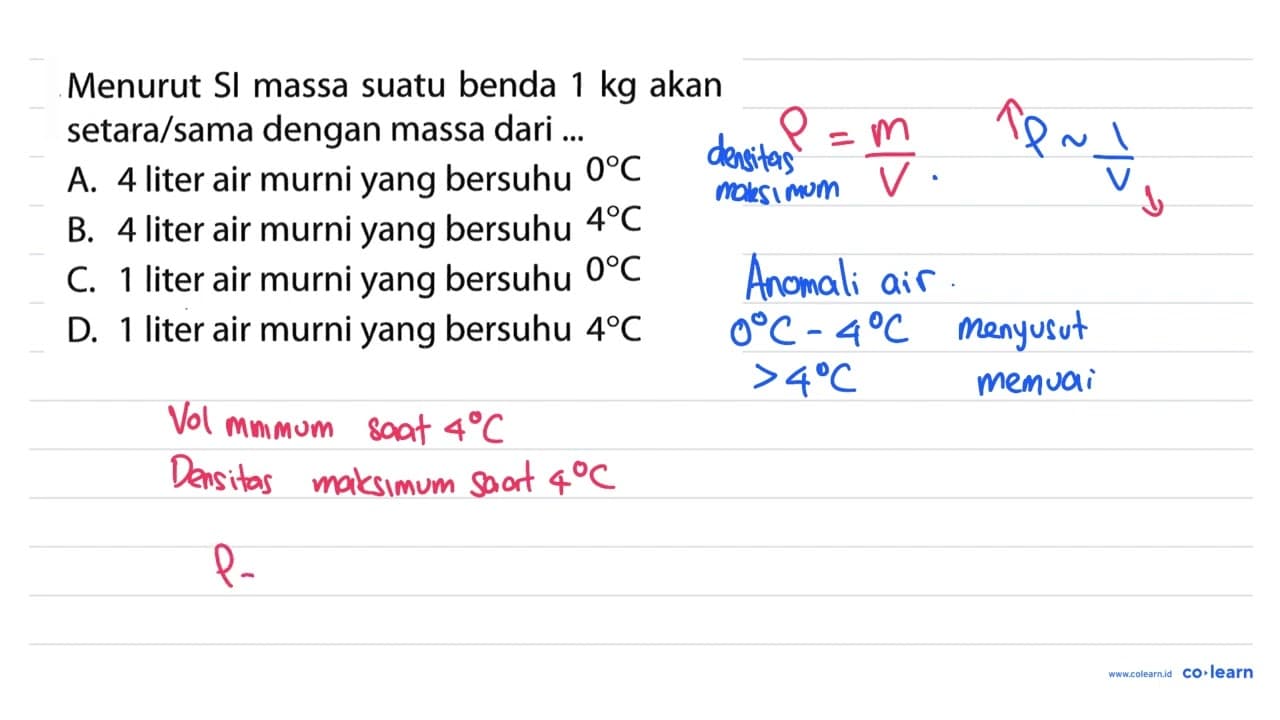 Menurut SI massa suatu benda 1 kg akan
setara/sama dengan massa dari ...
A. 4 liter air murni yang bersuhu 0°C
B. 4 liter air murni yang bersuhu 4°C
C. 1 liter air murni yang bersuhu 0°C
D. 1 liter air murni yang bersuhu 4°C
densitas
maksimum
ρ = m/V .
↑ρ ~ 1/V ↓
Anomali air .
0°C - 4°C menyusut
>4°C memuai
Vol minimum saat 4°C
Densitas maksimum saat 4°C
ρ-
www.colearn.id co·learn